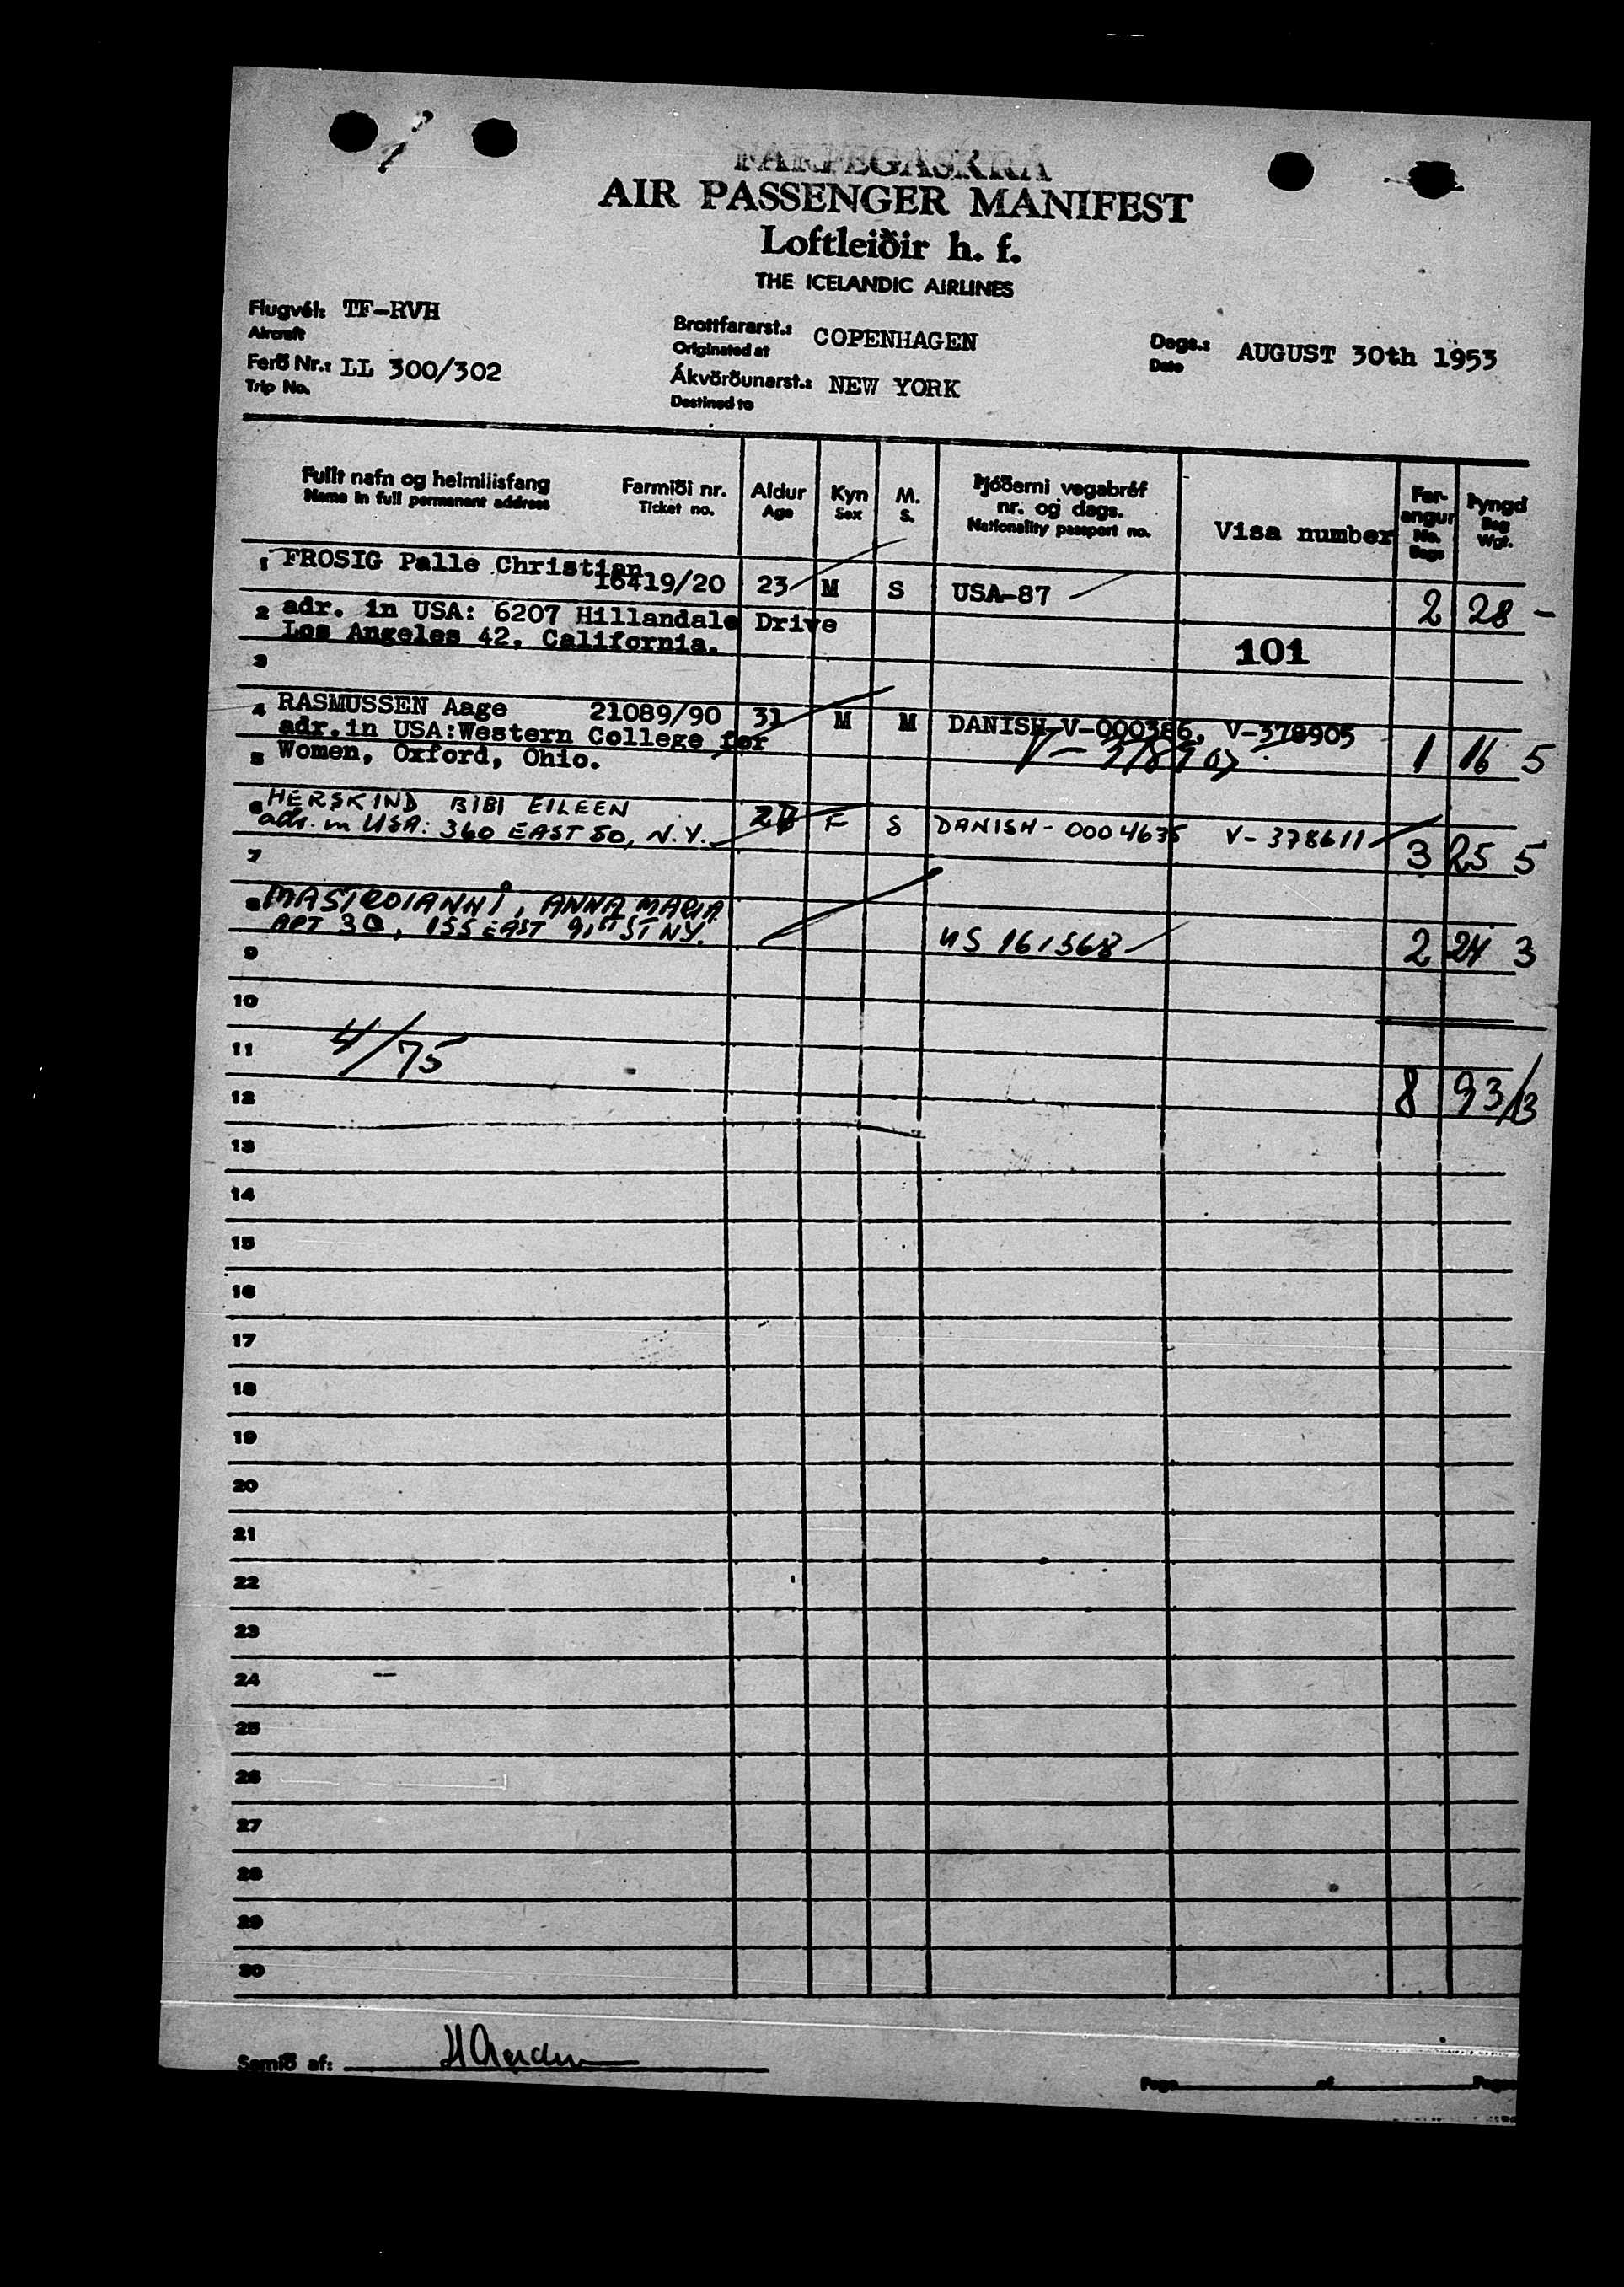 FARÞEGASKRÁ
AIR PASSENGER MANIFEST
Loftleiðir h. f.
THE ICELANDIC AIRLINES
Flugvél: TF-RVH
Aircraft
Brottfararst.: COPENHAGEN
Originated at
Dags.: AUGUST 30th 1953
Date
Ferð Nr.: LL 300/302
Trip No.
Ákvörðunarst.: NEW YORK
Destined to
Fullt nafn og heimilisfang Farmiði nr. Aldur Kyn M. Þjóðerni vegabréf Far- Þyngd
Name in full permanent address Ticket no. Age Sex S. nr. og dags. Visa number angur Bag
Nationality passport no. No. Bags Wgt.
1 FROSIG Palle Christian 16419/20 23 M S USA-87 2 28 -
2 adr. in USA: 6207 Hillandale Drive
Los Angeles 42, California. 101
3
4 RASMUSSEN Aage 21089/90 31 M M DANISH-V-000386, V-378905 1 16 5
adr.in USA:Western College for
5 Women, Oxford, Ohio.
6 HERSKIND BIBI EILEEN F S DANISH - 0004635 V-378611 3 25 5
adr. in USA: 360 EAST 50, N.Y.
7
8 MASTROIANNI, ANNA MARIA
APT 3D, 155 EAST 91ST ST NY. US 161568 2 24 3
9
10
11 4/75
12 8 93/13
13
14
15
16
17
18
19
20
21
22
23
24
25
26
27
28
29
30
Samið af:
Page of Pages